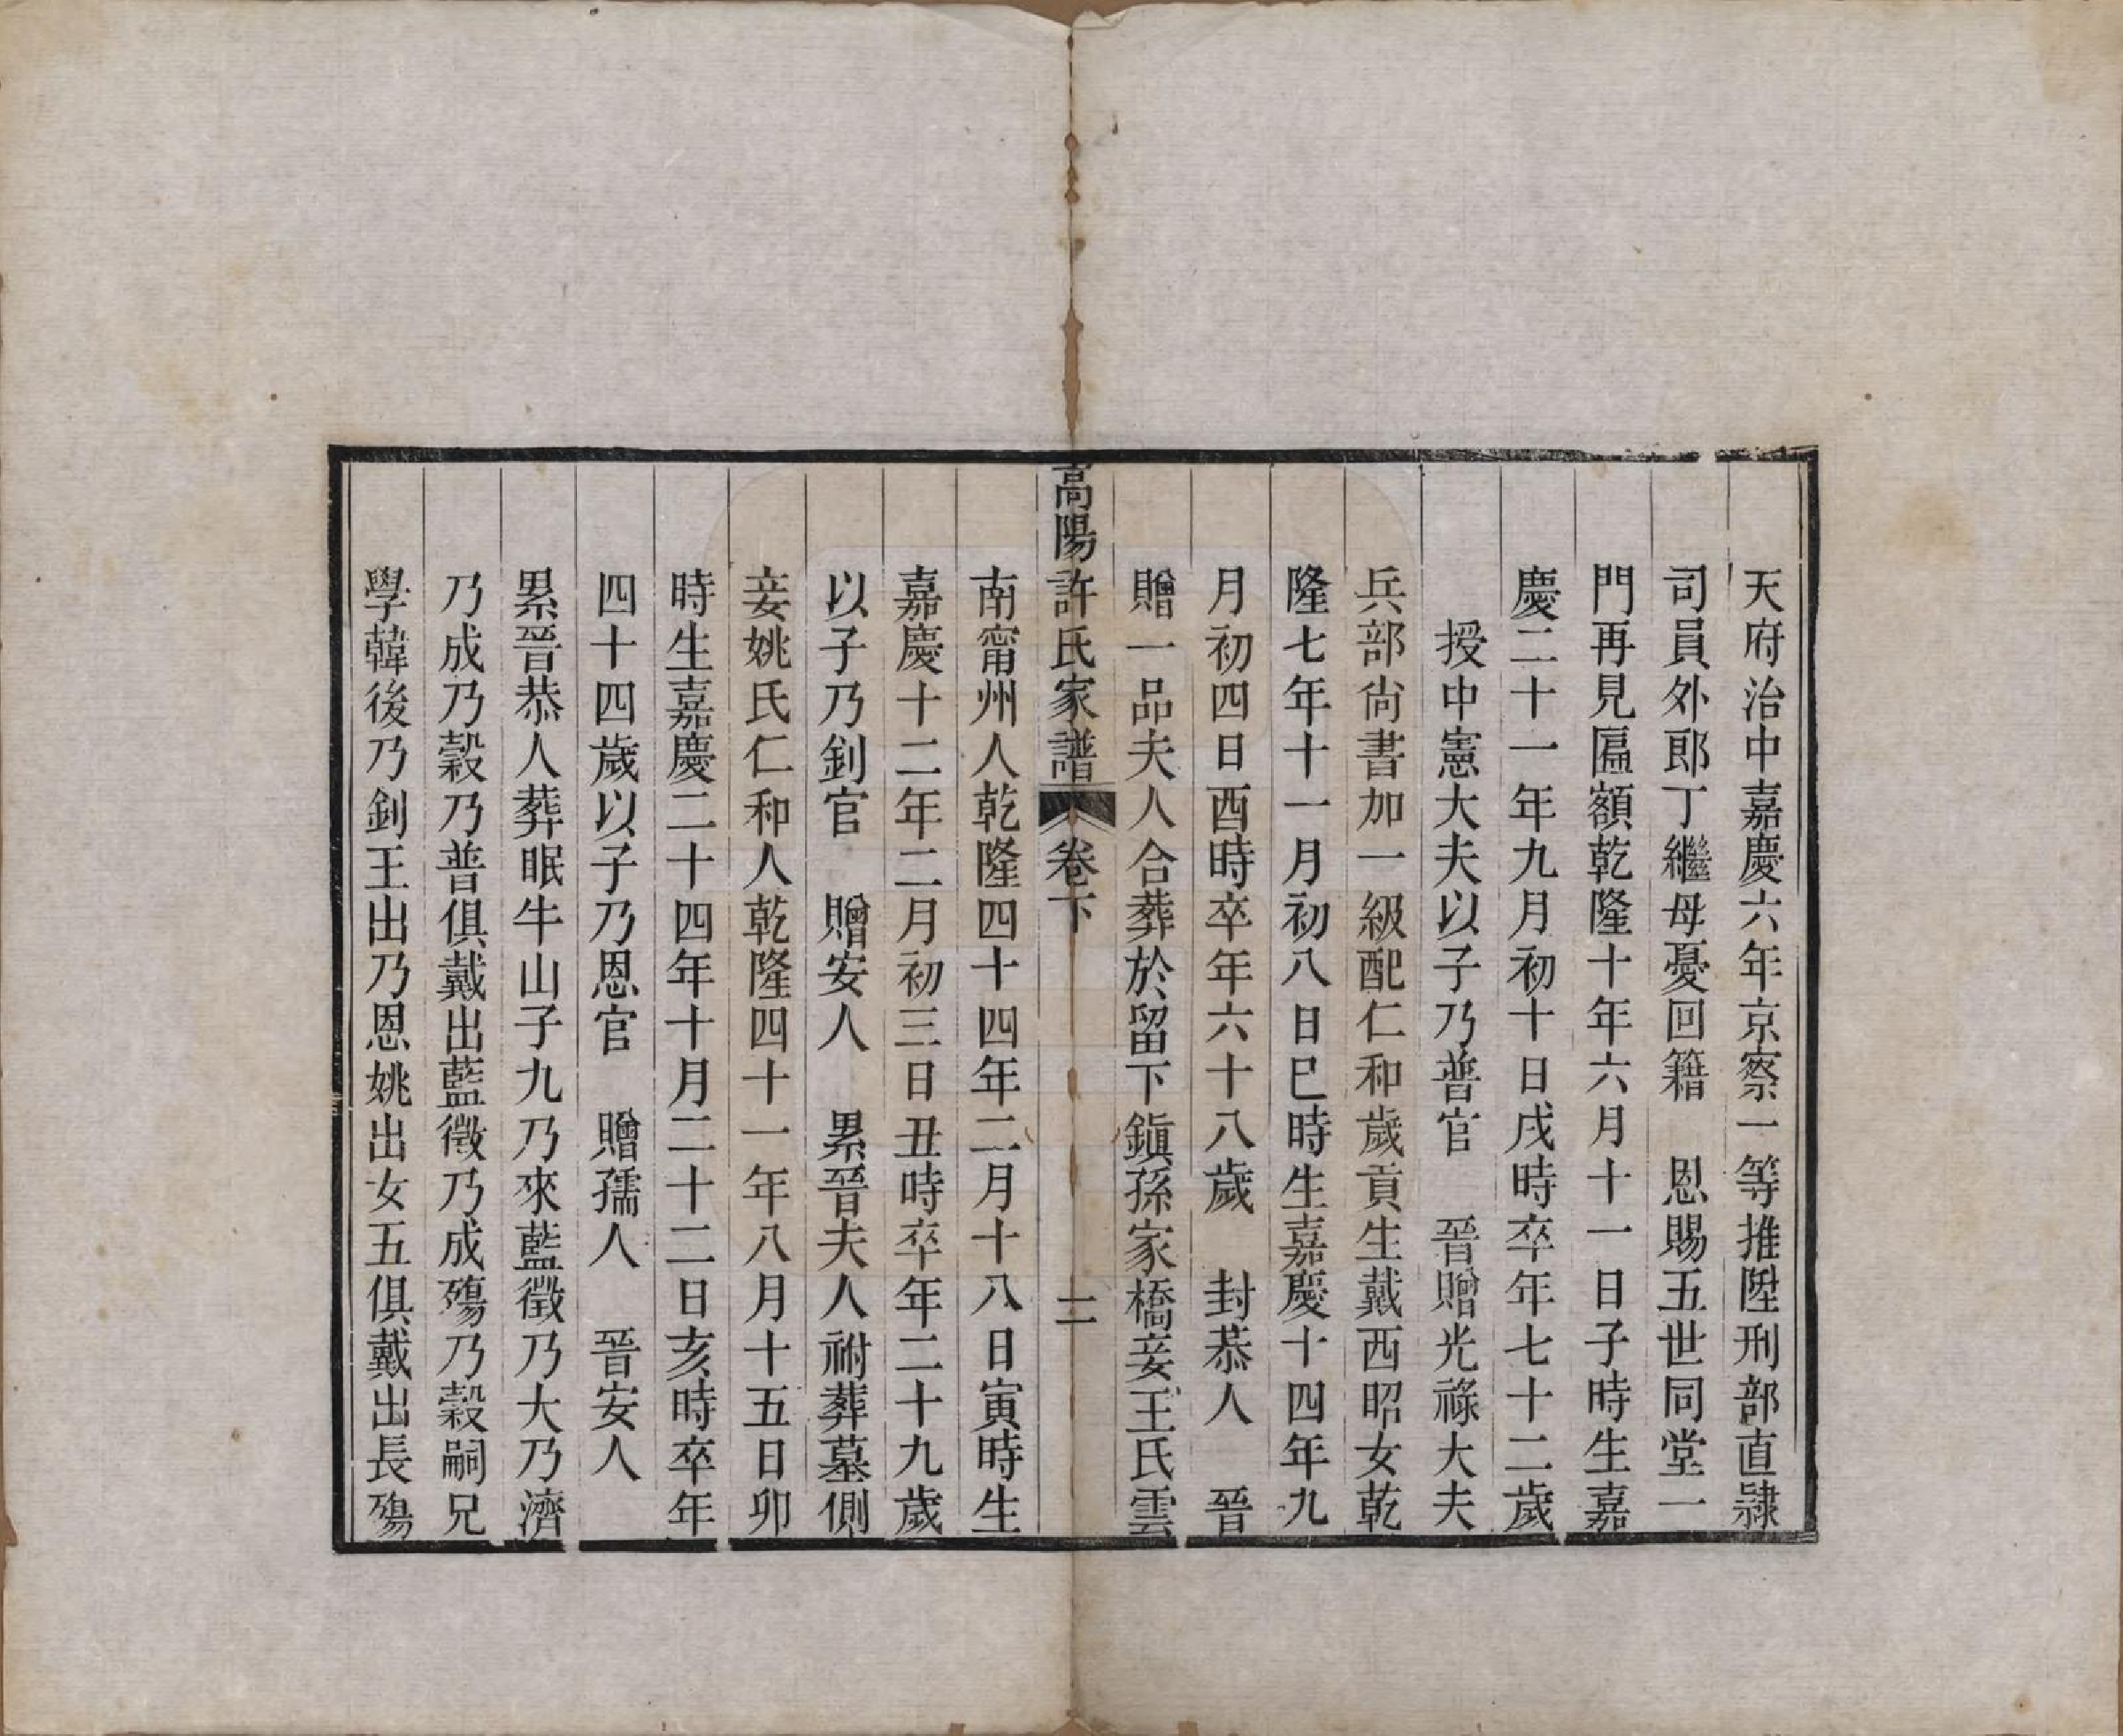 天府治中嘉慶六年京察一等推陞刑部直隸
司員外郎丁繼母憂回籍　恩賜五世同堂一
門再見匾額乾隆十年六月十一日子時生嘉
慶二十一年九月初十日戌時卒年七十二歲
授中憲大夫以子乃普官　晉贈光祿大夫
兵部尙書加一級配仁和歲貢生戴西昭女乾
隆七年十一月初八日巳時生嘉慶十四年九
月初四日酉時卒年六十八歲　封恭人　晉
贈一品夫人合葬於留下鎭孫家橋妾王氏雲
高陽許氏家譜　卷下　二
南甯州人乾隆四十四年二月十八日寅時生
嘉慶十二年二月初三日丑時卒年二十九歲
以子乃釗官　贈安人　累晉夫人祔葬墓側
妾姚氏仁和人乾隆四十一年八月十五日卯
時生嘉慶二十四年十月二十二日亥時卒年
四十四歲以子乃恩官　贈孺人　晉安人
累晉恭人葬眠牛山子九乃來藍徵乃大乃濟
乃成乃穀乃普俱戴出藍徵乃成殤乃穀嗣兄
學韓後乃釗王出乃恩姚出女五俱戴出長殤